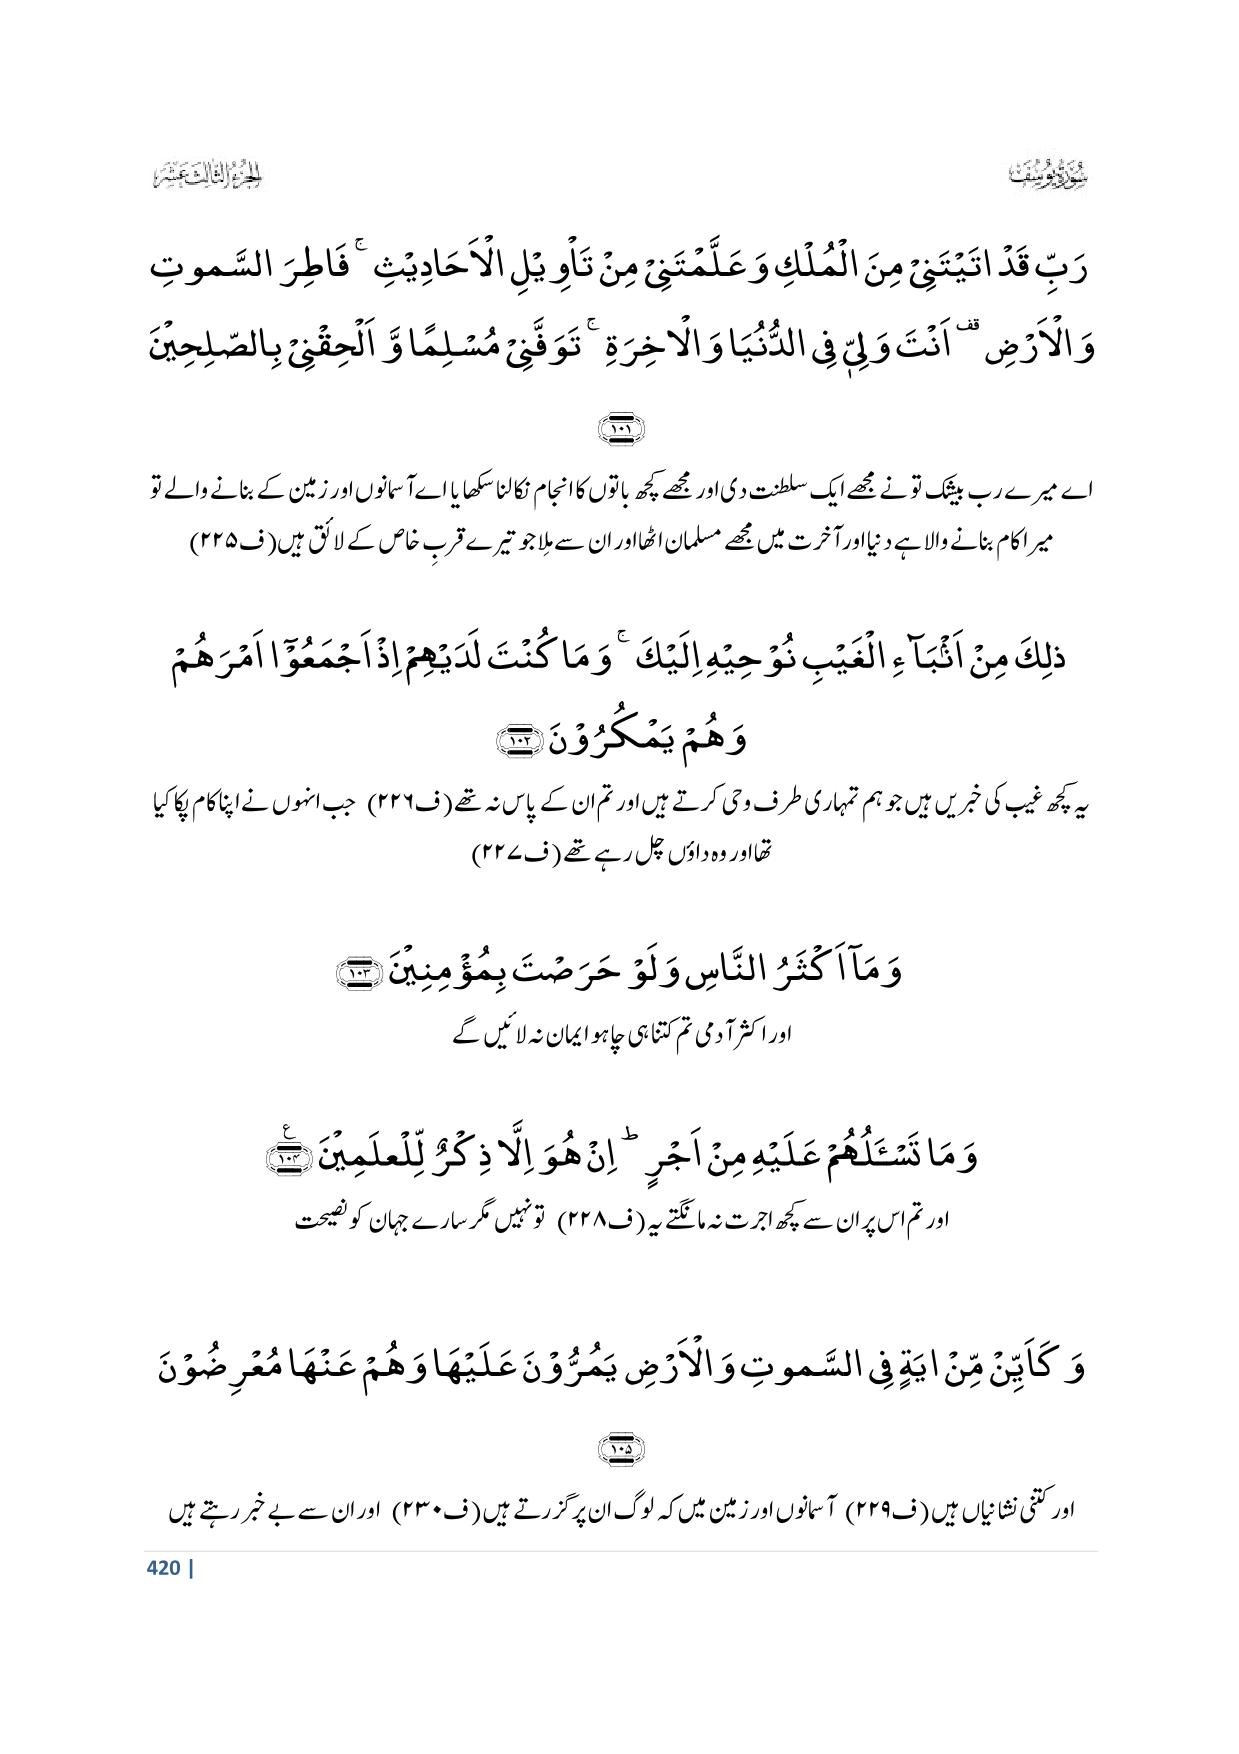 سُوْرَةُ يُوسُف الجُزْءُ الثَّالِثُ عَشَر
رَبِّ قَدْ اٰتَيْتَنِيْ مِنَ الْمُلْكِ وَ عَلَّمْتَنِيْ مِنْ تَاْوِيْلِ الْاَحَادِيْثِ ۚ فَاطِرَ السَّمٰوٰتِ
وَ الْاَرْضِ ۫ اَنْتَ وَلِيّٖ فِي الدُّنْيَا وَ الْاٰخِرَةِ ۚ تَوَفَّنِيْ مُسْلِمًا وَّ اَلْحِقْنِيْ بِالصّٰلِحِيْنَ
﴿۱۰۱﴾
اے میرے رب بیشک تو نے مجھے ایک سلطنت دی اور مجھے کچھ باتوں کا انجام نکالنا سکھایا اے آسمانوں اور زمین کے بنانے والے تو
میرا کام بنانے والا ہے دنیا اور آخرت میں مجھے مسلمان اٹھا اور ان سے مِلا جو تیرے قربِ خاص کے لائق ہیں (ف۲۲۵)
ذٰلِكَ مِنْ اَنْۢبَآءِ الْغَيْبِ نُوْحِيْهِ اِلَيْكَ ۚ وَ مَا كُنْتَ لَدَيْهِمْ اِذْ اَجْمَعُوْۤا اَمْرَهُمْ
وَ هُمْ يَمْكُرُوْنَ ﴿۱۰۲﴾
یہ کچھ غیب کی خبریں ہیں جو ہم تمہاری طرف وحی کرتے ہیں اور تم ان کے پاس نہ تھے (ف۲۲۶) جب انہوں نے اپنا کام پکا کیا
تھا اور وہ داؤں چل رہے تھے (ف۲۲۷)
وَ مَاۤ اَكْثَرُ النَّاسِ وَ لَوْ حَرَصْتَ بِمُؤْمِنِيْنَ ﴿۱۰۳﴾
اور اکثر آدمی تم کتنا ہی چاہو ایمان نہ لائیں گے
وَ مَا تَسْـَٔلُهُمْ عَلَيْهِ مِنْ اَجْرٍ ؕ اِنْ هُوَ اِلَّا ذِكْرٌ لِّلْعٰلَمِيْنَ ﴿۱۰۴﴾ ع
اور تم اس پر ان سے کچھ اجرت نہ مانگتے یہ (ف۲۲۸) تو نہیں مگر سارے جہان کو نصیحت
وَ كَاَيِّنْ مِّنْ اٰيَةٍ فِي السَّمٰوٰتِ وَ الْاَرْضِ يَمُرُّوْنَ عَلَيْهَا وَ هُمْ عَنْهَا مُعْرِضُوْنَ
﴿۱۰۵﴾
اور کتنی نشانیاں ہیں (ف۲۲۹) آسمانوں اور زمین میں کہ لوگ ان پر گزرتے ہیں (ف۲۳۰) اور ان سے بے خبر رہتے ہیں
420 |